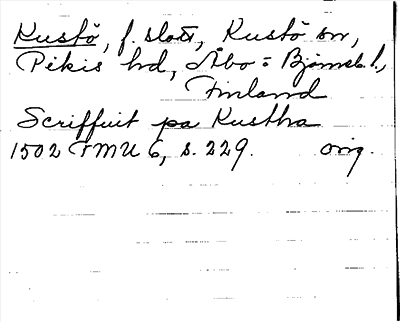 Kustö, f. slott, Kustö sn,
Pikis hd, Åbo = Björneb. l.,
Finland
Scriffuit pa Kustha
1502 FMU 6, s. 229. orig.